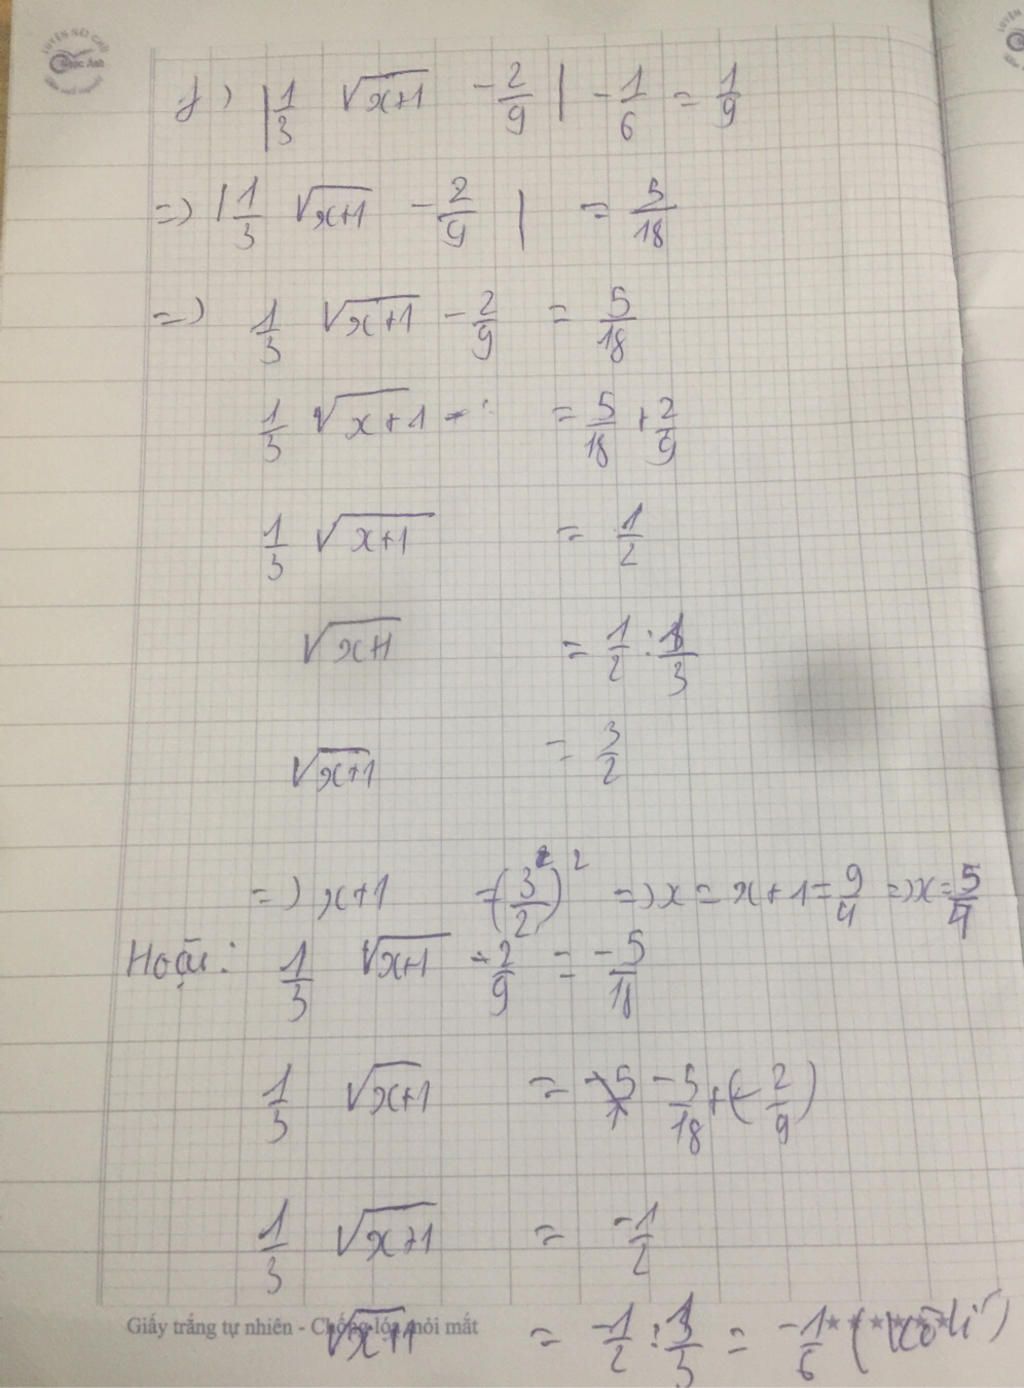 LUYỆN NÉT CHỮ
Ngọc Ánh
f) |1/3 √(x+1) - 2/9| - 1/6 = 1/9
=) |1/3 √(x+1) - 2/9| = 5/18
=) 1/3 √(x+1) - 2/9 = 5/18
1/3 √(x+1) = 5/18 + 2/9
1/3 √(x+1) = 1/2
√(x+1) = 1/2 : 1/3
√(x+1) = 3/2
=) x+1 = (3/2)² =) x = x+1 = 9/4 =) x = 5/4
Hoặc: 1/3 √(x+1) - 2/9 = -5/18
1/3 √(x+1) = -5/18 + (-2/9)
1/3 √(x+1) = -1/2
√(x+1) = -1/2 : 1/3 = -1/6 (vô lí)
Giấy trắng tự nhiên - Chống lóa mỏi mắt